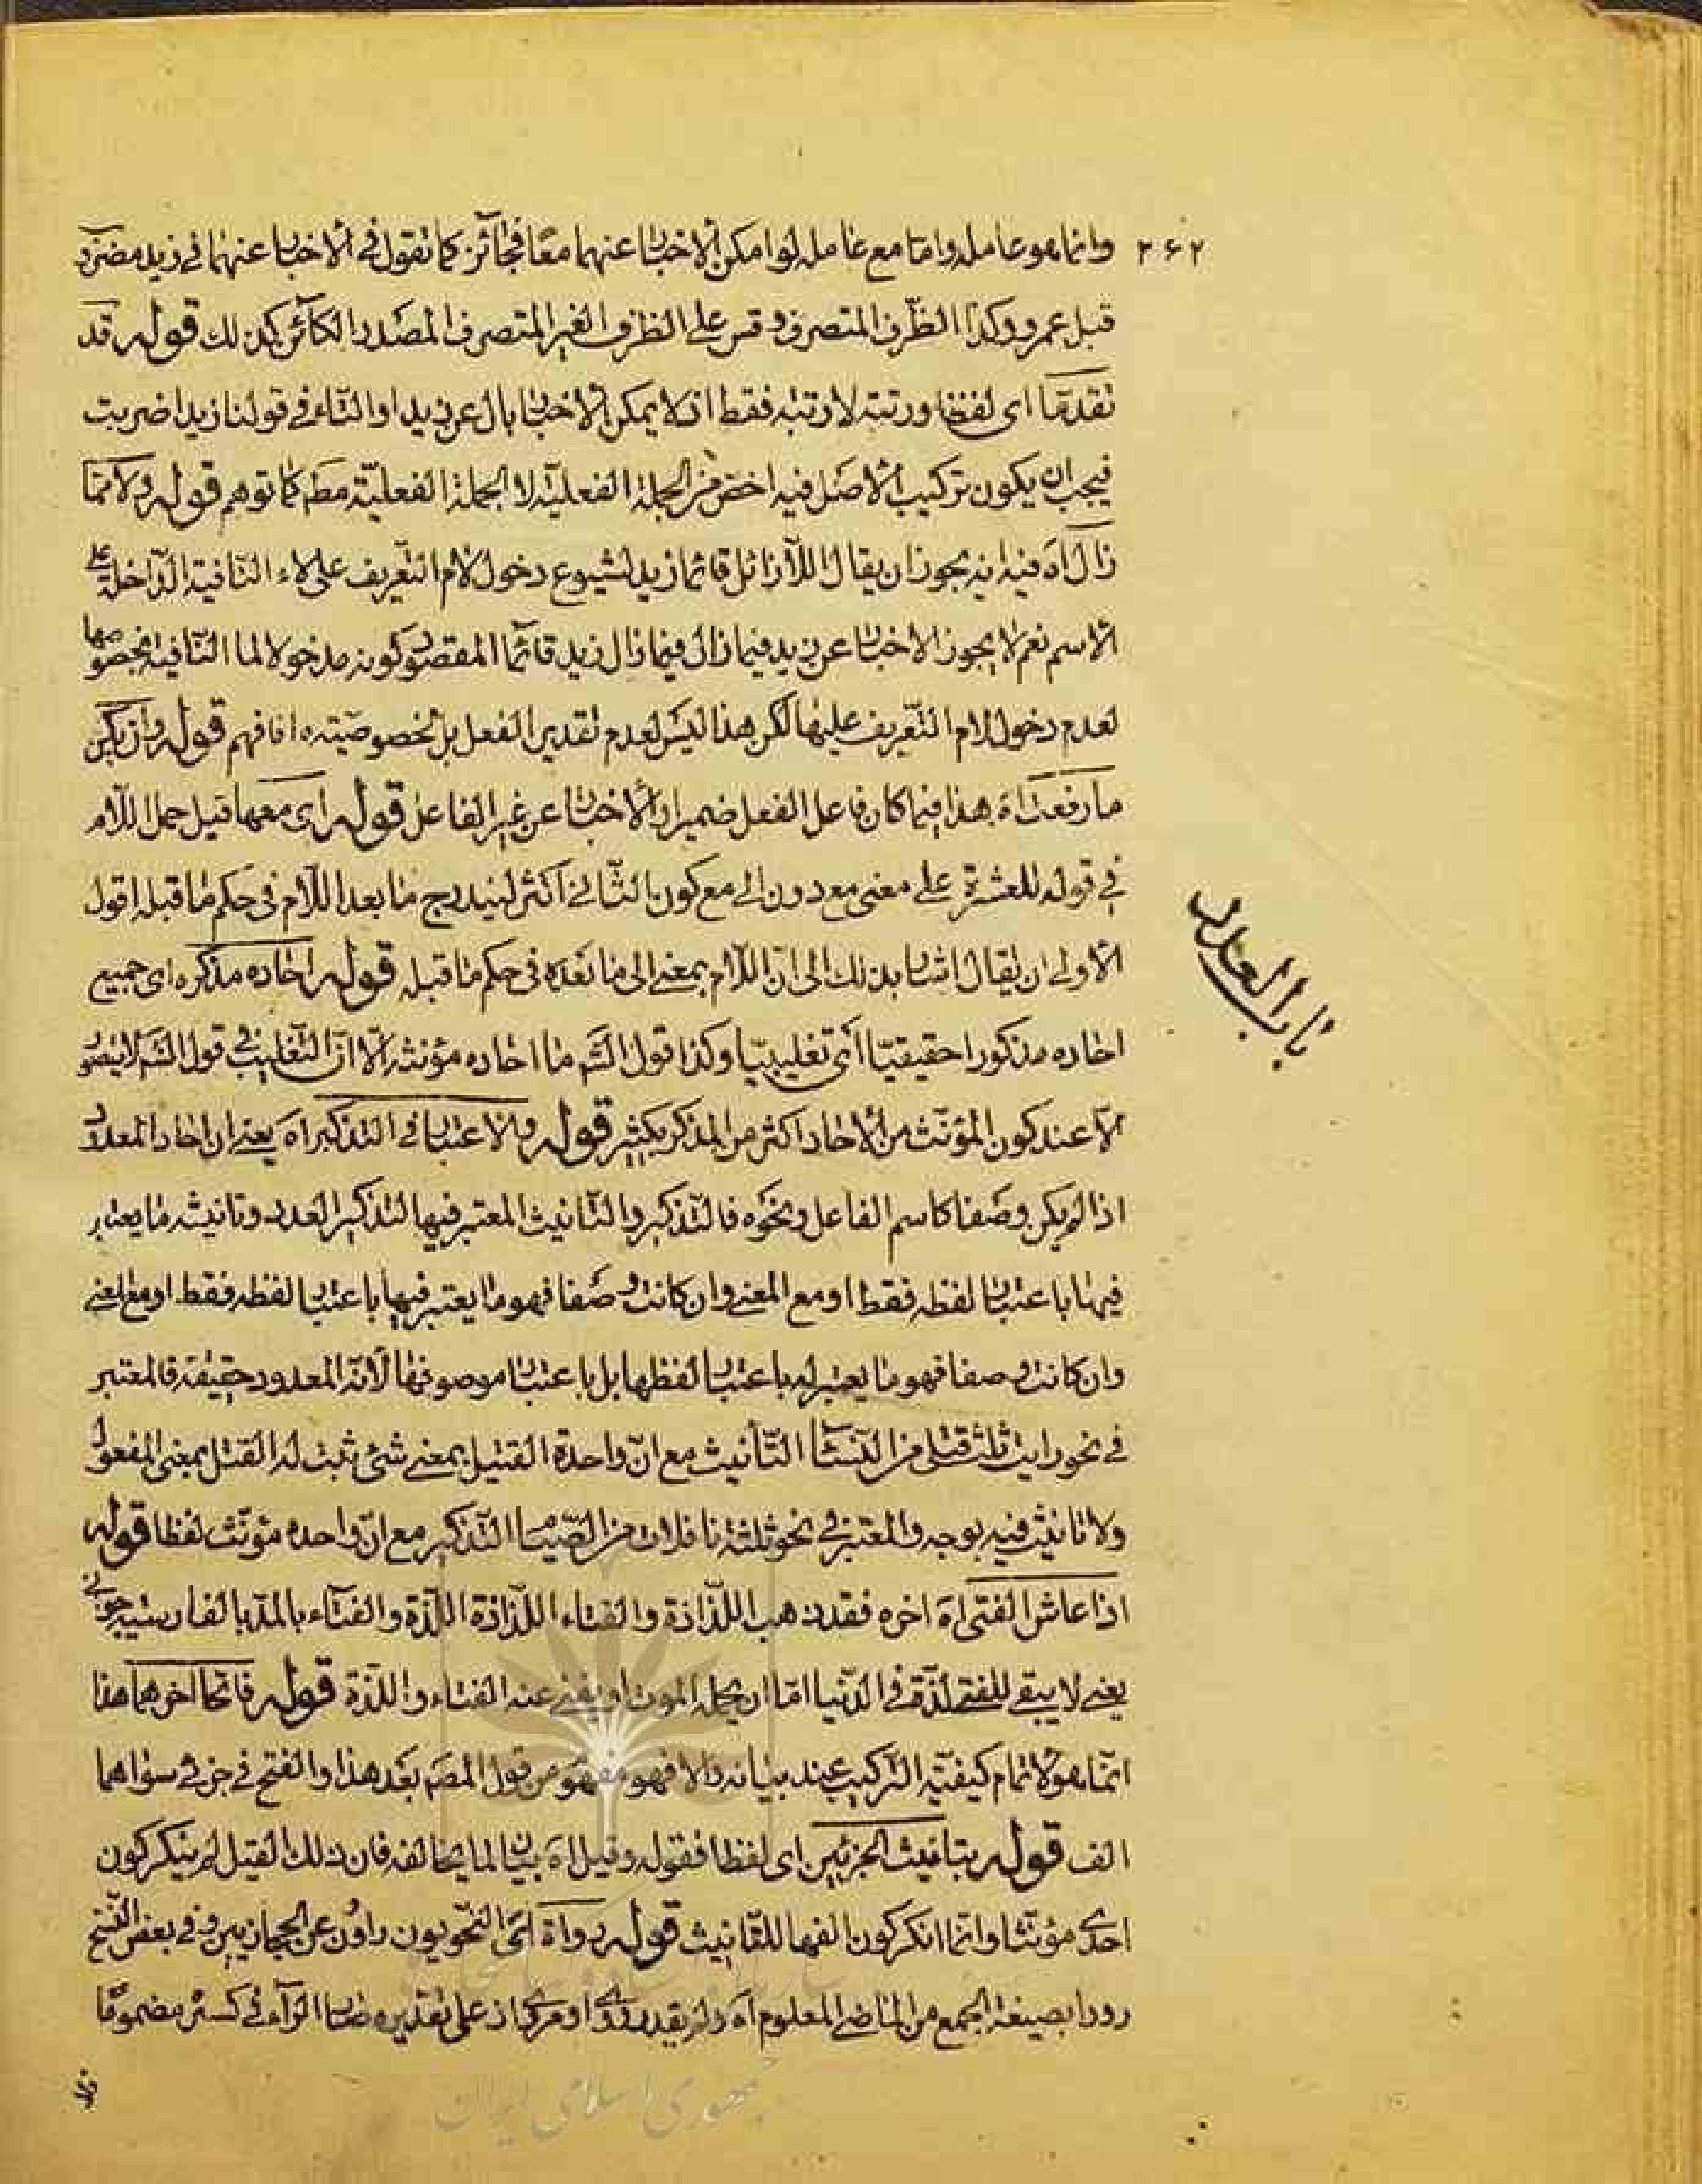 ٢۶٢
وانما هو عامله واما مع عامله لو امكن الاخبار عنهما معا فجائز كما تقول فى الاخبار عنهما فى زيد مضرد
قبل عمرو وكذا الظرف المتصرف وقس على الظرف الغير المتصرف المصدر الكائن كذلك قوله قد
تقدما اى لفظا ورتبة لا رتبة فقط اذ لا يمكن الاخبار بال عن زيد او التاء فى قولنا زيدا ضربت
فيجب ان يكون تركيب الاصل فيه اخص من الجملة الفعلية لا الجملة الفعلية مطم كما توهم قوله ولا
زال اه فيه انه يجوز ان يقال اللازائل قائما زيد لشيوع دخول لام التعريف على لاء النافية الداخلة على
الاسم نعم لا يجوز الاخبار عن زيد فيما زال فيما زال زيد قائما المقصود كونه مدخولا لما النافية بخصوصها
لعدم دخول لام التعريف عليها لكن هذا ليس لعدم تقدير الفعل بل لخصوصيته فافهم قوله وان يكن
ما رفعت اه هذا فيما كان فاعل الفعل ضميرا والاخبار عن غير الفاعل قوله اى معها قيل حمل اللام
فى قوله للعشرة على معنى مع دون الى مع كون الثانى اكثر ليندرج ما بعد اللام فى حكم ما قبله اقول
الاولى ان يقال اشار بذلك الى ان اللام بمعنى الى ما بعده فى حكم ما قبله قوله احاده مذكره اى جميع
باب العدد
احاده مذكورا حقيقيا اى تغليبيا وكذا قول الش ما احاده مؤنثه الا ان التغليب فى قول الش لا يتصو
الا عند كون المؤنث من الاحاد اكثر من المذكر بكثير قوله والاعتبار فى التذكير اه يعنى ان احاد المعدود
اذا لم يكن وصفا كاسم الفاعل ونحوه فالتذكير والتانيث المعتبر فيها لتذكير العدد وتانيثه ما يعتبر
فيها باعتبار لفظه فقط او مع المعنى وان كانت وصفا فهو ما يعتبر فيها باعتبار لفظه فقط او مع المعنى
وان كانت وصفا فهو ما يعتبر له باعتبار لفظها بل باعتبار موصوفها لانه المعدود حقيقة فالمعتبر
فى نحو رايت ثلث قتلى من النساء التأنيث مع ان واحدة القتيل بمعنى شئ ثبت له القتل بمعنى المفعول
ولا تانيث فيه بوجه والمعتبر فى نحو ثلثة نافلات من الصيام التذكير مع ان واحده مؤنث لفظا قوله
اذا عاش الفتى اه اخره فقد ذهب اللذاذة والفتاء اللذاذة اللذة والفتاء بالمد بالفارسية جوانى
يعنى لا يبقى للفتى لذة فى الدنيا اما ان يحمله الموت او يفنى عنه الفتاء واللذة قوله فاتحا اخرهما هذا
انما هو لاتمام كيفية التركيب عند بيانه والا فهو مفهوم من قول المصم بعد هذا والفتح فى جزئى سواهما
الف قوله بتانيث الجزئين اى لفظا فقوله وقيل اه بيان لما يخالفه فان ذلك القيل لم ينكر كون
احدى مؤنثا وانما انكر كون الفها للتانيث قوله رواة اى النحويون راون عن الحجازيين وفى بعض النسخ
رووا بصيغة الجمع من الماضى المعلوم اه على تقديره الراء فى كسر مضموما